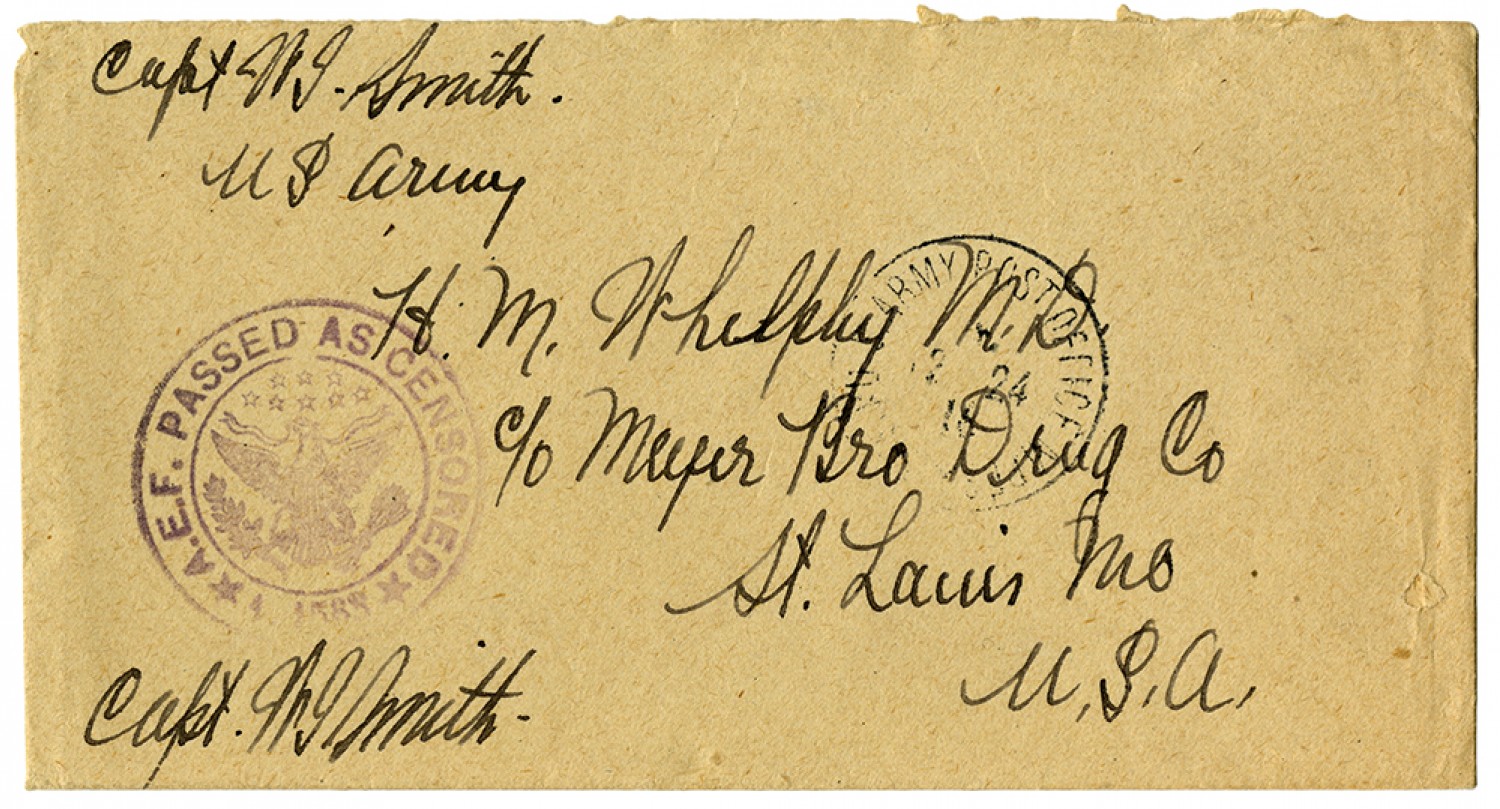 Capt W.J. Smith.
U S Army
H. M. Whelpley M.D.
c/o Meyer Bro Drug Co
St. Louis Mo
U.S.A.
Capt. W J Smith
A.E.F. PASSED AS CENSORED
ARMY POST OFFICE
24